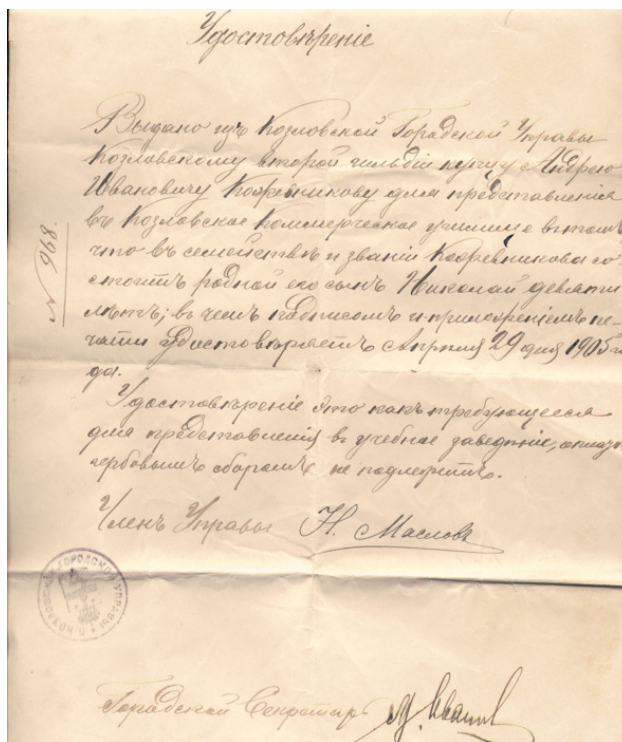 Удостовѣреніе
Выдано изъ Козловской Городской Управы
Козловскому второй гильдіи купцу Андрею
Ивановичу Кожевникову для представленія
въ Козловское Коммерческое училище въ томъ
что въ семействѣ и званіи Кожевникова со
стоитъ родной его сынъ Николай девяти
лѣтъ; въ чемъ подписомъ и приложеніемъ пе-
чати удостовѣряетъ Апрѣля 29 дня 1905 г
да.
Удостовѣреніе это какъ требующееся
для представленія въ учебное заведеніе, оплатѣ
гербовымъ сборомъ не подлежитъ.
Членъ Управы Н. Масловъ
Городской Секретарь
N 968.
КОЗЛОВСКОЙ ГОРОДСКОЙ УПРАВЫ